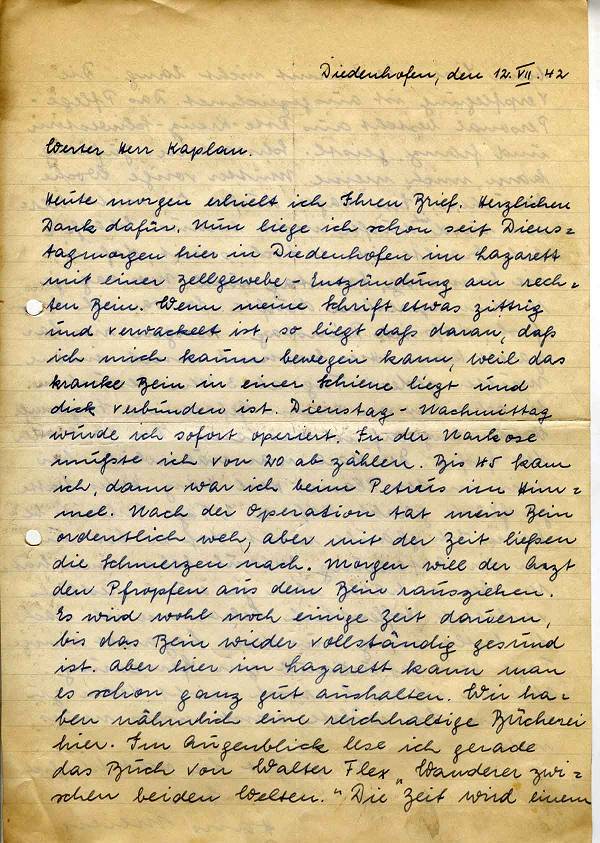 Diedenhofen, den 12.VII.42
Werter Herr Kaplan.
Heute morgen erhielt ich Ihren Brief. Herzlichen
Dank dafür. Nun liege ich schon seit Diens=
tagmorgen hier in Diedenhofen im Lazarett
mit einer Zellgewebe-Entzündung am rech=
ten Bein. Wenn meine Schrift etwas zittrig
und verwackelt ist, so liegt daß daran, daß
ich mich kaum bewegen kann, weil das
kranke Bein in einer Schiene liegt und
dick verbunden ist. Dienstag-Nachmittag
wurde ich sofort operiert. In der Narkose
mußte ich von 20 ab zählen. Bis 45 kam
ich, dann war ich beim Petrus im Him=
mel. Nach der Operation tat mein Bein
ordentlich weh, aber mit der Zeit ließen
die Schmerzen nach. Morgen will der Arzt
den Pfropfen aus dem Bein rausziehen.
Es wird wohl noch einige Zeit dauern,
bis das Bein wieder vollständig gesund
ist. Aber hier im Lazarett kann man
es schon ganz gut aushalten. Wir ha=
ben nähmlich eine reichhaltige Bücherei
hier. Im Augenblick lese ich gerade
das Buch von Walter Flex „Wanderer zwi=
schen beiden Welten.“ Die Zeit wird einem